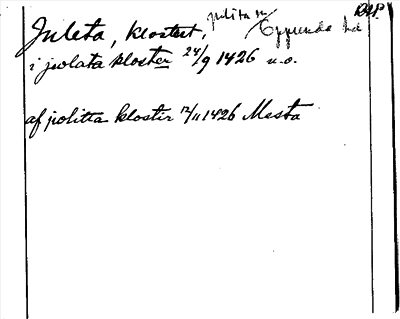 Juleta, klostret, Julita sn Oppunda hd
i jwlata kloster 24/9 1426 u.o.
af jwlitta klostir 12/11 1426 Mesta